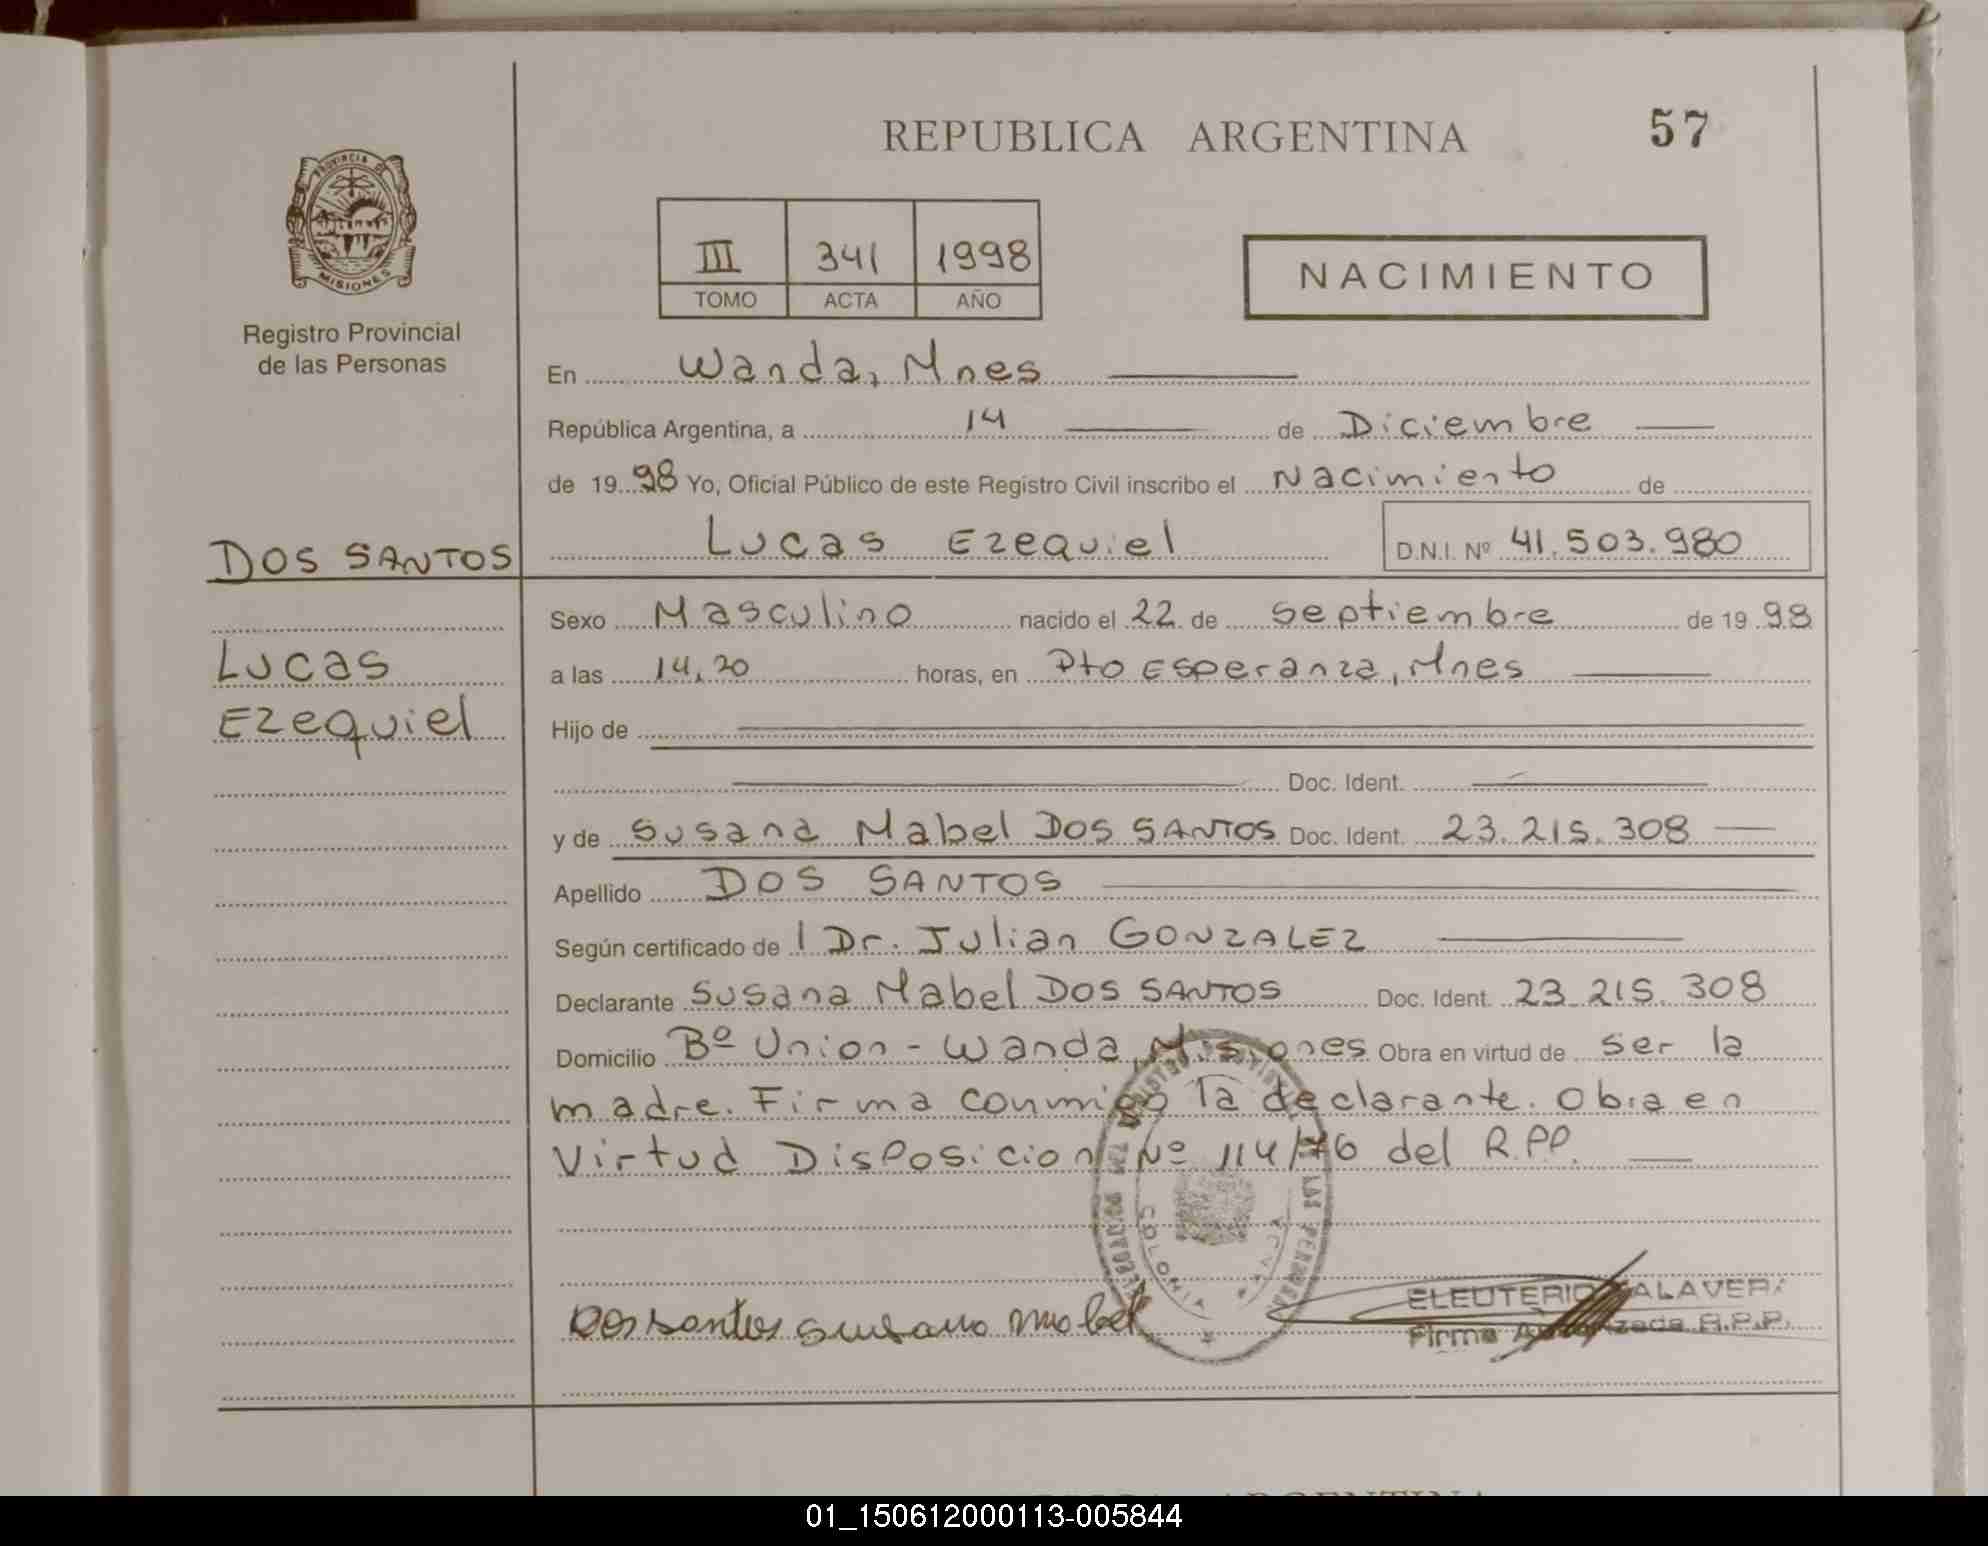 REPUBLICA ARGENTINA
57
PROVINCIA DE
MISIONES
Registro Provincial
de las Personas
III 341 1998
TOMO ACTA AÑO
NACIMIENTO
En Wanda, Mnes
República Argentina, a 14 de Diciembre
de 19 98 Yo, Oficial Público de este Registro Civil inscribo el Nacimiento de
DOS SANTOS
Lucas Ezequiel D.N.I. Nº 41.503.980
Lucas
Ezequiel
Sexo Masculino nacido el 22 de Septiembre de 19 98
a las 14,20 horas, en Pto Esperanza, Mnes
Hijo de
Doc. Ident.
y de Susana Mabel DOS SANTOS Doc. Ident. 23.215.308
Apellido DOS SANTOS
Según certificado de l Dr. Julian GONZALEZ
Declarante Susana Mabel DOS SANTOS Doc. Ident. 23.215.308
Domicilio Bº Union - Wanda, Misiones Obra en virtud de ser la
madre. Firma conmigo la declarante. Obra en
Virtud Disposicion Nº 114/76 del R.P.P.
COLONIA
LAS PERSONAS
Dos santos susana mabel
ELEUTERIO TALAVERA
Firma Autorizada R.P.P.
01_150612000113-005844